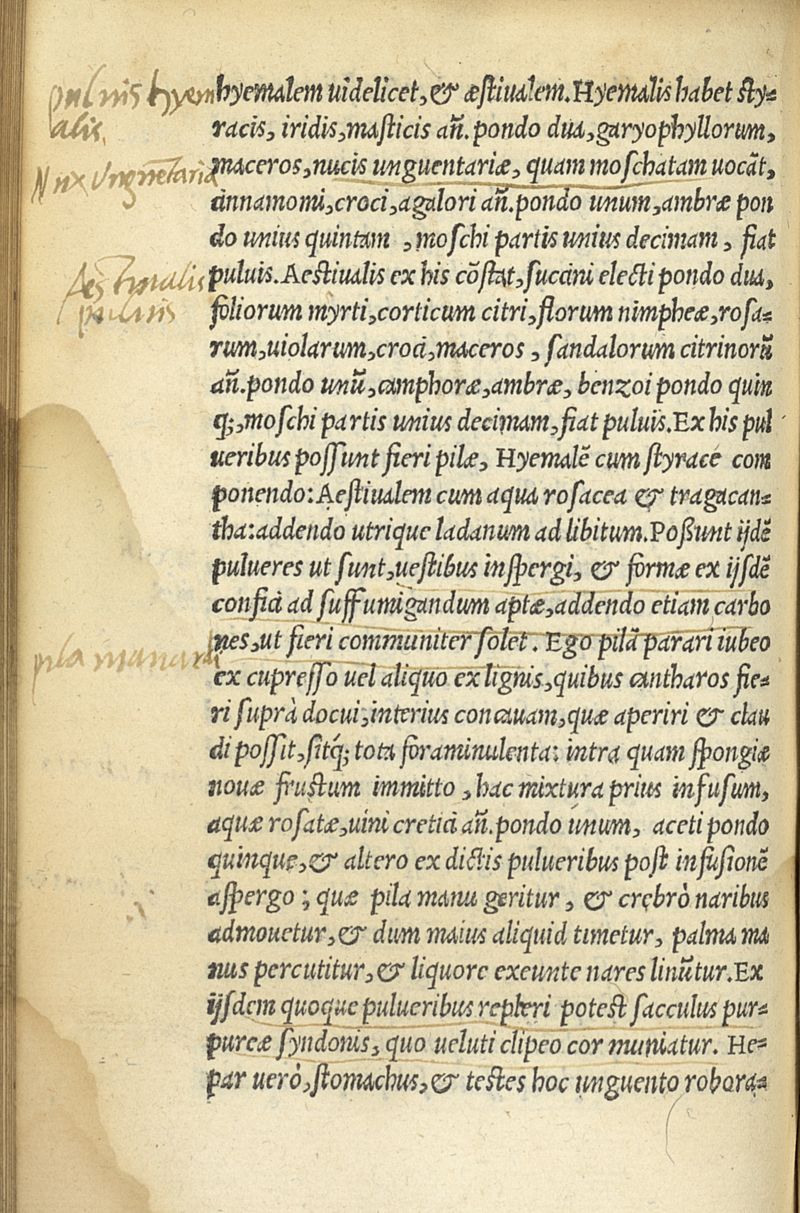 puluis hyem
alis.
Nux Vnguentaria
Aestiualis
puluis
pila manaria
hyemalem uidelicet, & æstiualem. Hyemalis habet sty-
racis, iridis, masticis añ. pondo dua, garyophyllorum,
maceros, nucis unguentariæ, quam moschatam uocãt,
cinnamomi, croci, agalori añ. pondo unum, ambræ pon
do unius quintam , moschi partis unius decimam , fiat
puluis. Aestiualis ex his cõstat, succini electi pondo dua,
foliorum myrti, corticum citri, florum nimpheæ, rosa-
rum, uiolarum, croci, maceros , sandalorum citrinorũ
añ. pondo unũ, camphoræ, ambræ, benzoi pondo quin
q;, moschi partis unius decimam, fiat puluis. Ex his pul
ueribus possunt fieri pilæ, Hyemalẽ cum styrace com
ponendo: Aestiualem cum aqua rosacea & tragacan-
tha: addendo utrique ladanum ad libitum. Poßunt ijdẽ
pulueres ut sunt, uestibus inspergi, & formæ ex ijsdẽ
confici ad suffumigandum aptæ, addendo etiam carbo
nes, ut fieri communiter solet. Ego pilã parari iubeo
ex cupresso uel aliquo ex lignis, quibus cantharos fie-
ri suprà docui, interius concauam, quæ aperiri & clau
di possit, sitq́; tota foraminulenta: intra quam spongiæ
nouæ frustum immitto , hac mixtura prius infusum,
aquæ rosatæ, uini cretici añ. pondo unum, aceti pondo
quinque, & altero ex dictis pulueribus post infusionẽ
aspergo ; quæ pila manu geritur , & crebrò naribus
admouetur, & dum maius aliquid timetur, palma ma
nus percutitur, & liquore exeunte nares linũtur. Ex
ijsdem quoque pulueribus repleri potest sacculus pur-
pureæ syndonis, quo ueluti clipeo cor muniatur. He-
par uerò, stomachus, & testes hoc unguento robora-